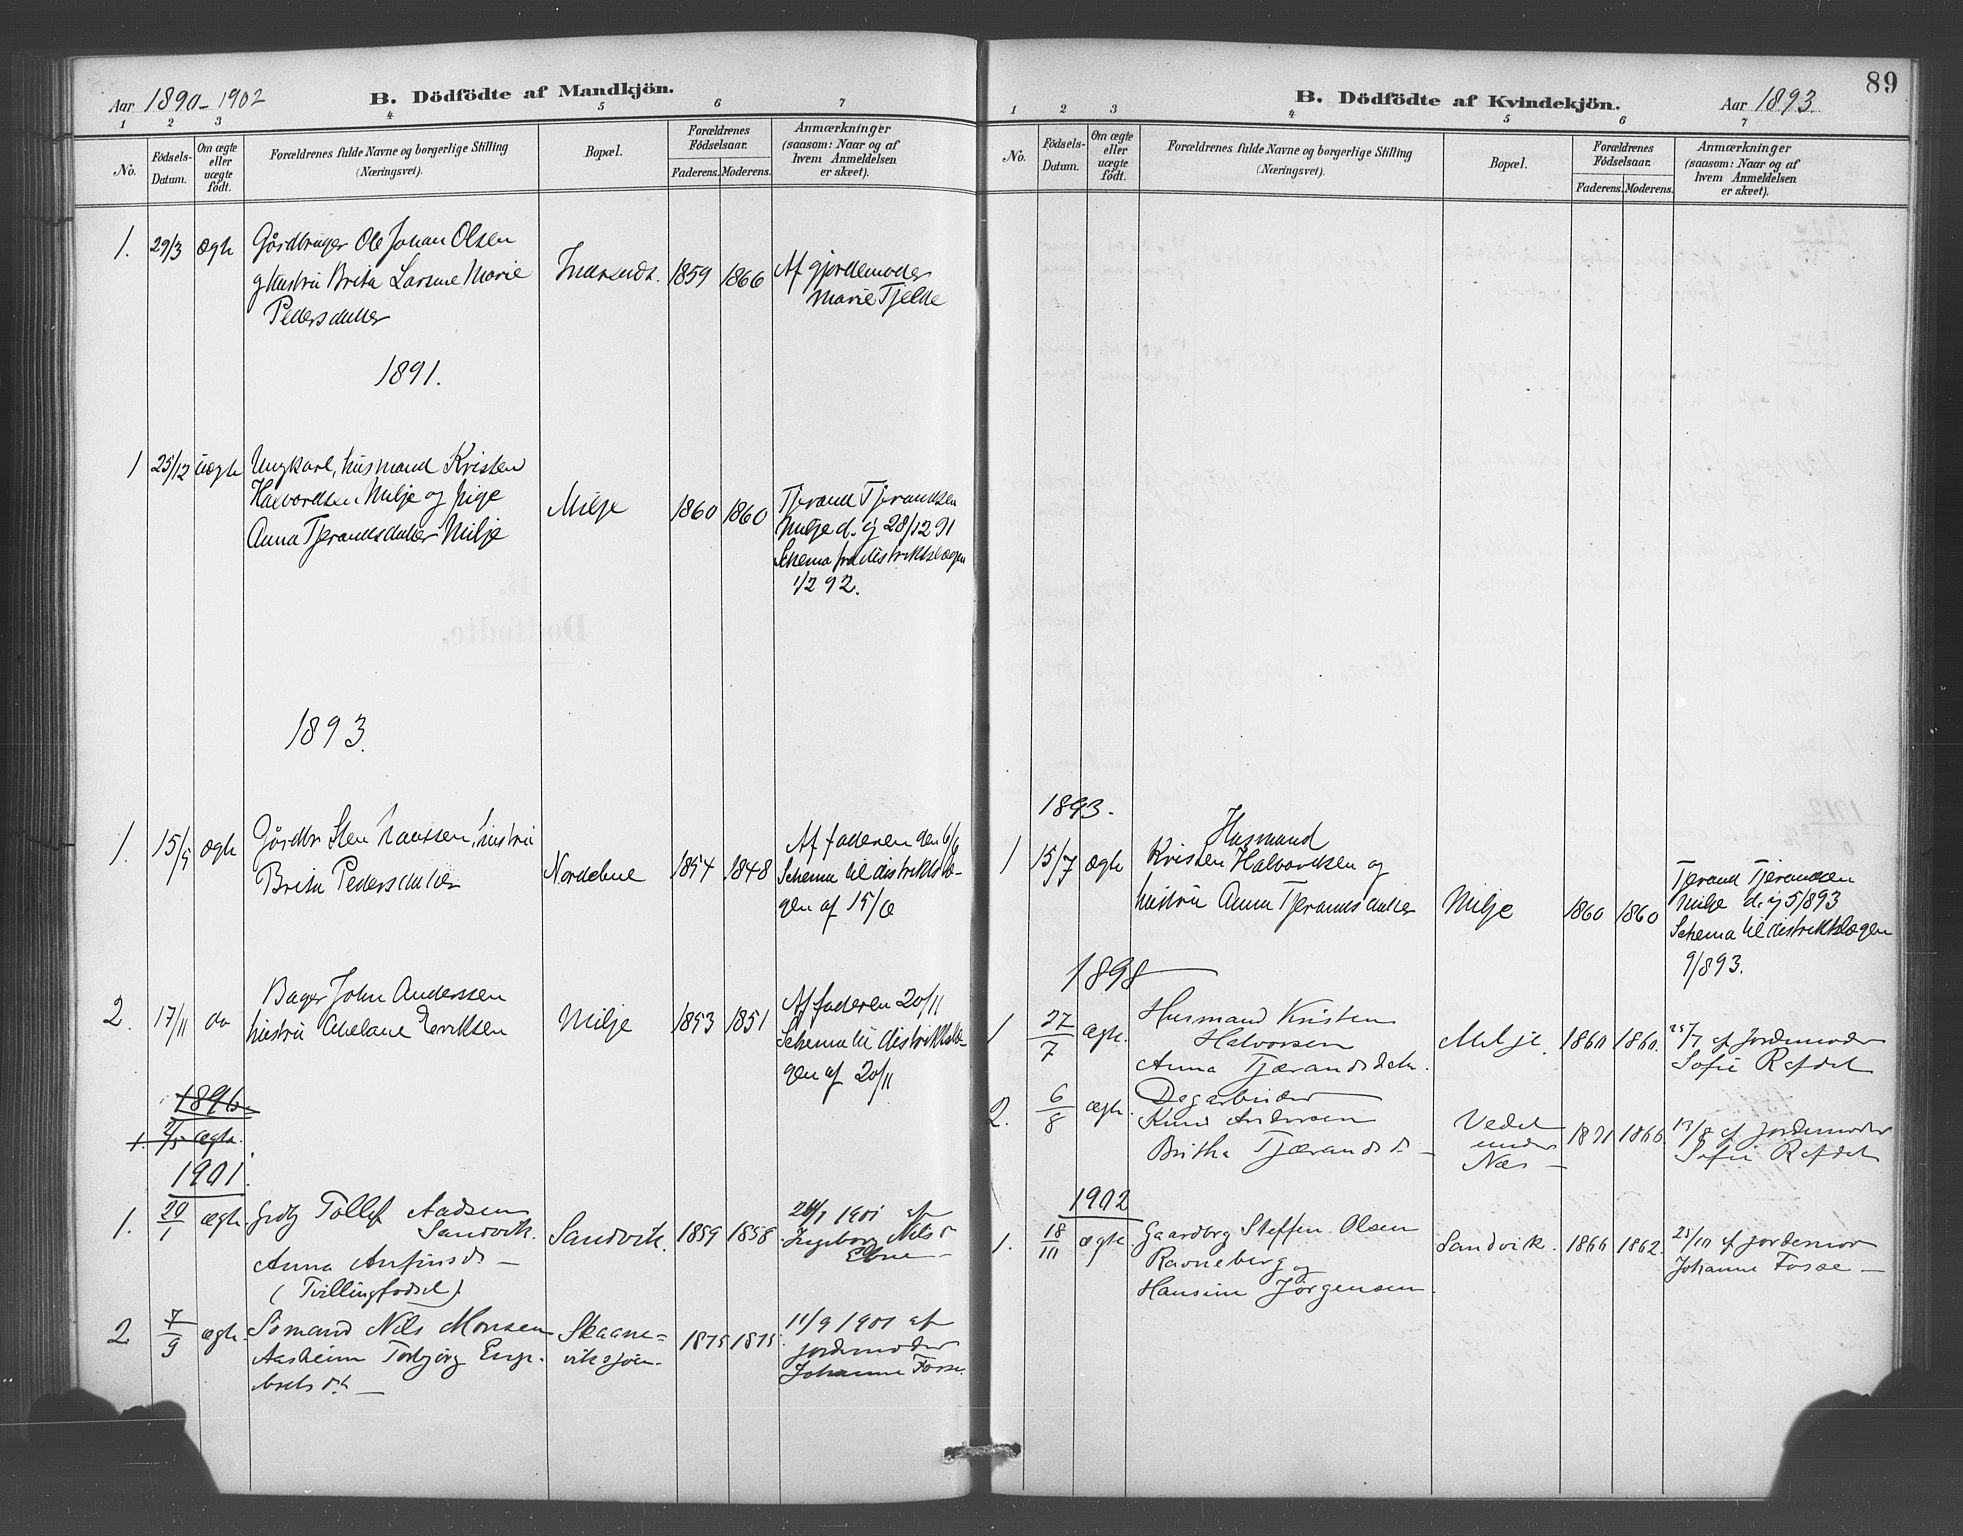 Aar 1890-1902
B. Dödfödte af Mandkjön.
1 2 3 4 5 6 7
No.
Födsels-Datum.
Om ægte eller uægte födt.
Forældrenes fulde Navne og borgerlige Stilling (Næringsvei).
Bopæl.
Forældrenes Födselsaar.
Faderens. Moderens.
Anmærkninger
(saasom: Naar og af
hvem Anmeldelsen
er skeet).
1. 29/3 ægte Gårdbruger Ole Johan Olsen
g hustru Brita Larsine Marie
Pedersdatter
1859 1866
Af gjordemoder
Marie Tjelde
1891.
1 25/12 uægte Ungkarl, husmand Kristen
Halvordsen Milje og pige
Anna Tjerandsdatter Milje
Milje 1860 1860
Tjerand Tjerandsen
Milje d. ij 28/12 91
Schema fra distriktslægen
1/2 92.
1893.
1. 15/5 ægte Gårdbr Sten Hanssen, hustru
Brita Pedersdatter
1854 1848
Af faderen den 6/6
Schema til distriktslæ-
gen af 15/6
2. 17/11 do Bager John Anderssen
hustru Abelane Eeriksen
Milje 1853 1851
Af faderen 20/11
Schema til distriktslæ-
gen af 20/11
1896.
1. 2/5 ægte.
1901.
1. 20/1 ægte. Grdbg Tollef Aadsen
Sandvik.
Anna Anfinsd. –
(Tvillingfødsel).
Sandvik. 1859 1858
1901 af
Ingeborg Nilsd
Ebne –
2 7/9 ægte. Sömand Nils Monsen
Aasheim Torbjörg Enge-
bretsdt. –
Skaane-
viksjöen. 1875 1875.
11/9 1901 af
jordemoder
Johanne Fosse.
89
B. Dödfödte af Kvindekjön.
Aar 1893.
1 2 3 4 5 6 7
No.
Födsels-Datum.
Om ægte eller uægte födt.
Forældrenes fulde Navne og borgerlige Stilling (Næringsvei).
Bopæl.
Forældrenes Födselsaar.
Faderens. Moderens.
Anmærkninger
(saasom: Naar og af
hvem Anmeldelsen
er skeet).
1893.
1 15/7 ægte Husmand
Kristen Halvordsen og
hustru Anna Tjerandsdatter
Milje 1860 1860
Tjerand Tjerandsen
Milje d. ij 5/893
Schema til distriktslægen
9/893.
1898
1 27/7 ægte. Husmand Kristen
Halvorsen
Anna Tjærandsdatr.
Milje. 1860 1860.
25/7 af Jordemoder
Sofie Refdet
2. 6/8 ægte. Dagarbeider
Knud Andersen
Britha Tjærandsd. –
Vedet
under
Næs – 1871 1866.
13/8 af Jordemoder
Sofie Refdet
1902
1. 18/10 ægte. Gaardbrg Steffen Olsen
Ravneberg og
Hansine Jörgensen.
Sandvik. 1866 1862.
25/10 af jordemor
Johanne Fosse –